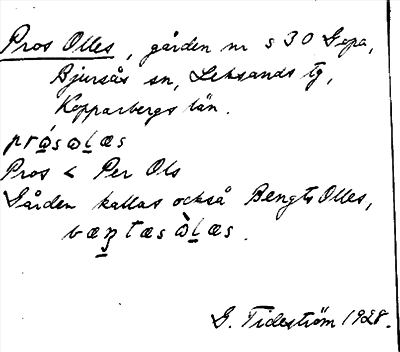 Pros Olles, gården nr s 30 Sopa,
Bjursås sn, Leksands tg,
Kopparbergs län.
prósωlæs
Pros < Per Ols
Gården kallas också Bengts Olles,
bæŋtæs ὼlæs.
G. Tideström 1928.